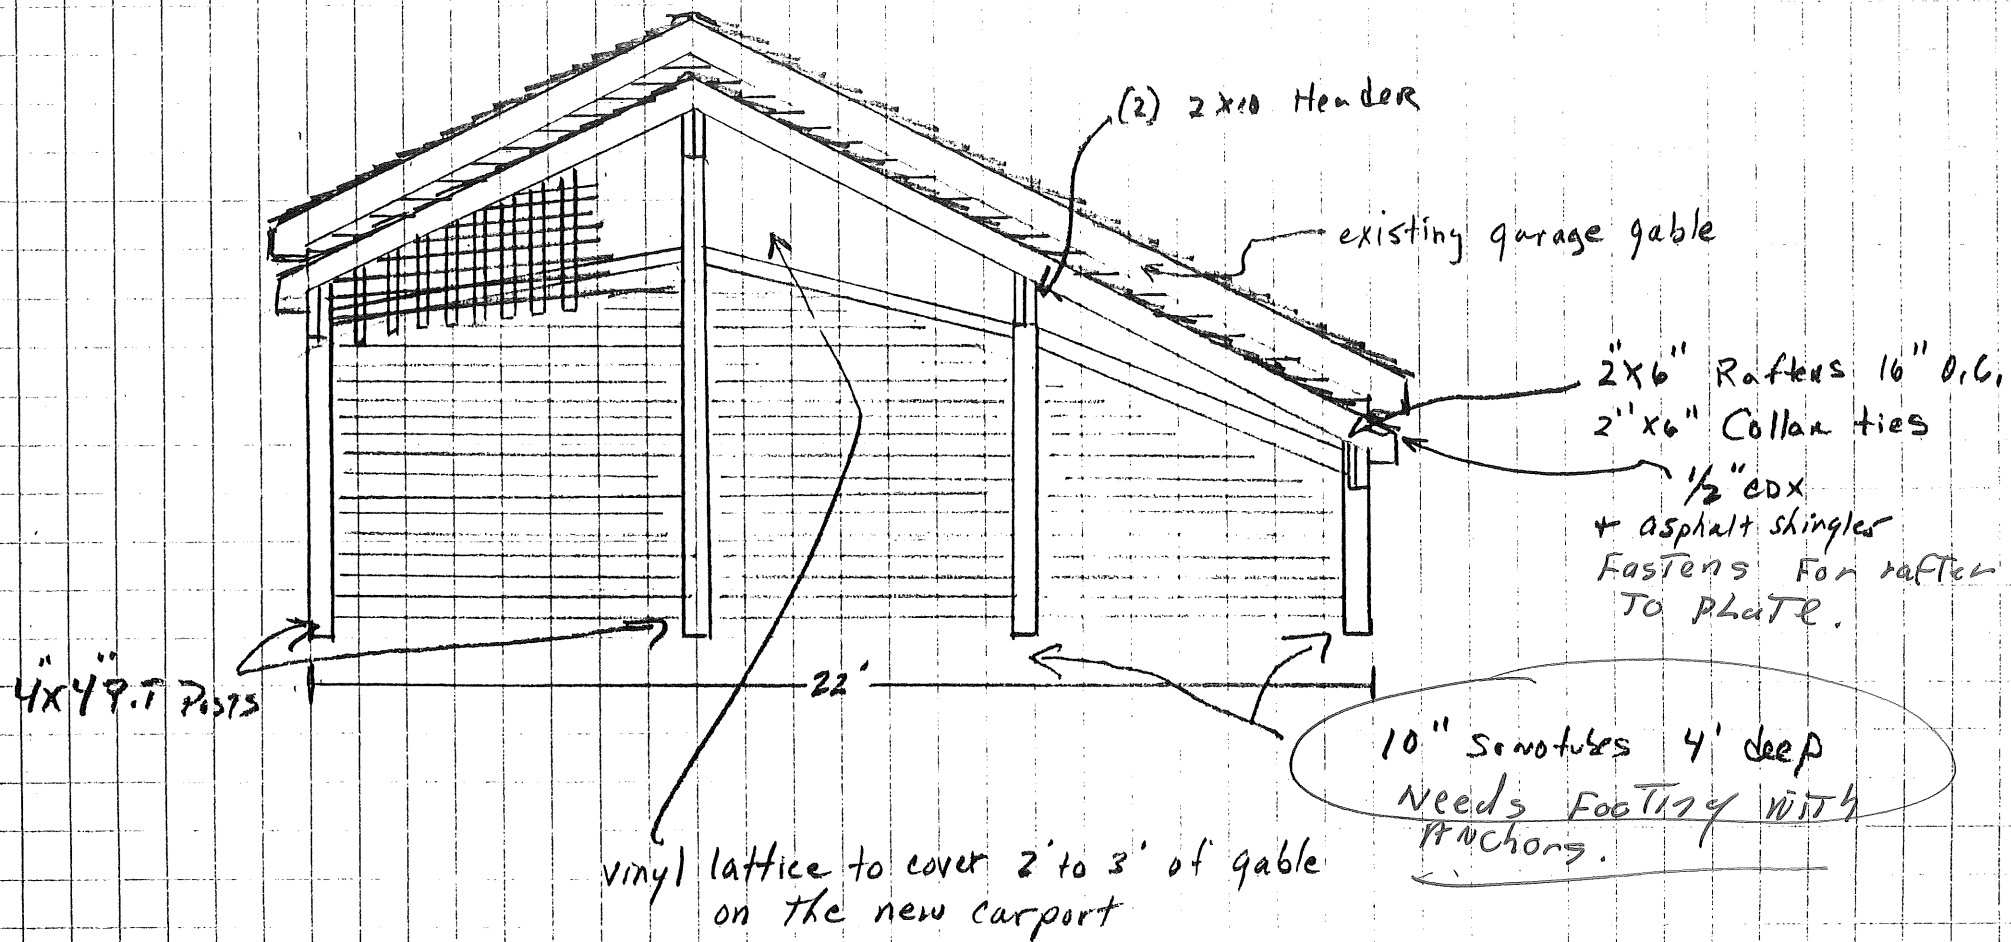 (2) 2x10 Header
existing garage gable
2"x6" Rafters 16" O.C.
2"x6" Collar ties
1/2" CDX
+ asphalt shingles
Fastens For rafter
To PLaTe.
4"x4" P.T Posts
22'
10" Sonotubes 4' deep
Needs FooTing WiTh
ANchors.
vinyl lattice to cover 2' to 3' of gable
on The new carport